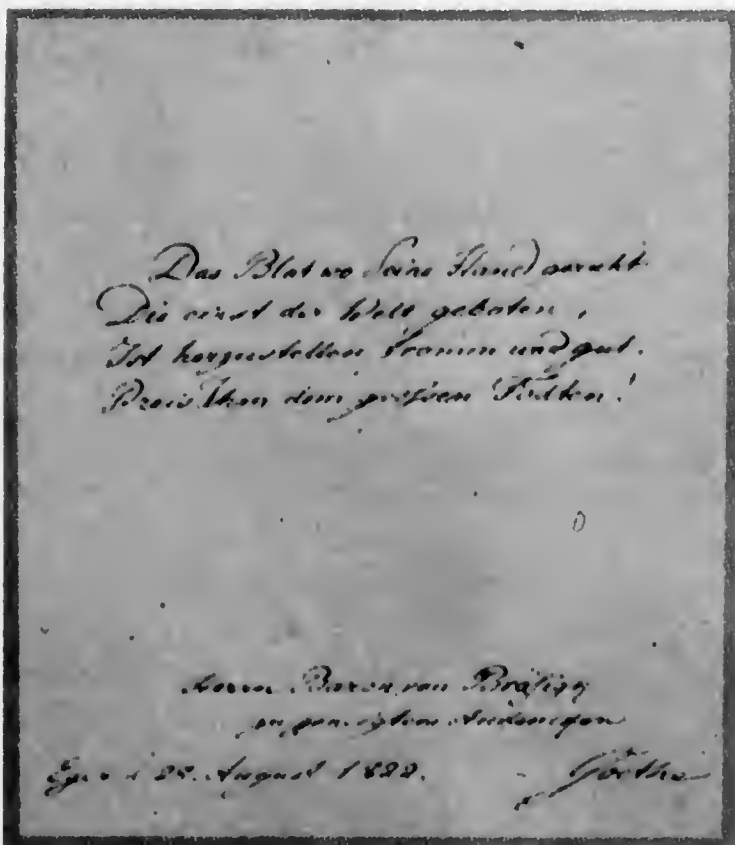 Das Blat wo Seine Hand geruht
Die einst der Welt geboten,
Ist herzustellen fromm und gut.
Preis Ihm dem großen Todten!
Herrn Baron von
zu geneigtem Andenken
Eger d 22. August 1822.
Göthe